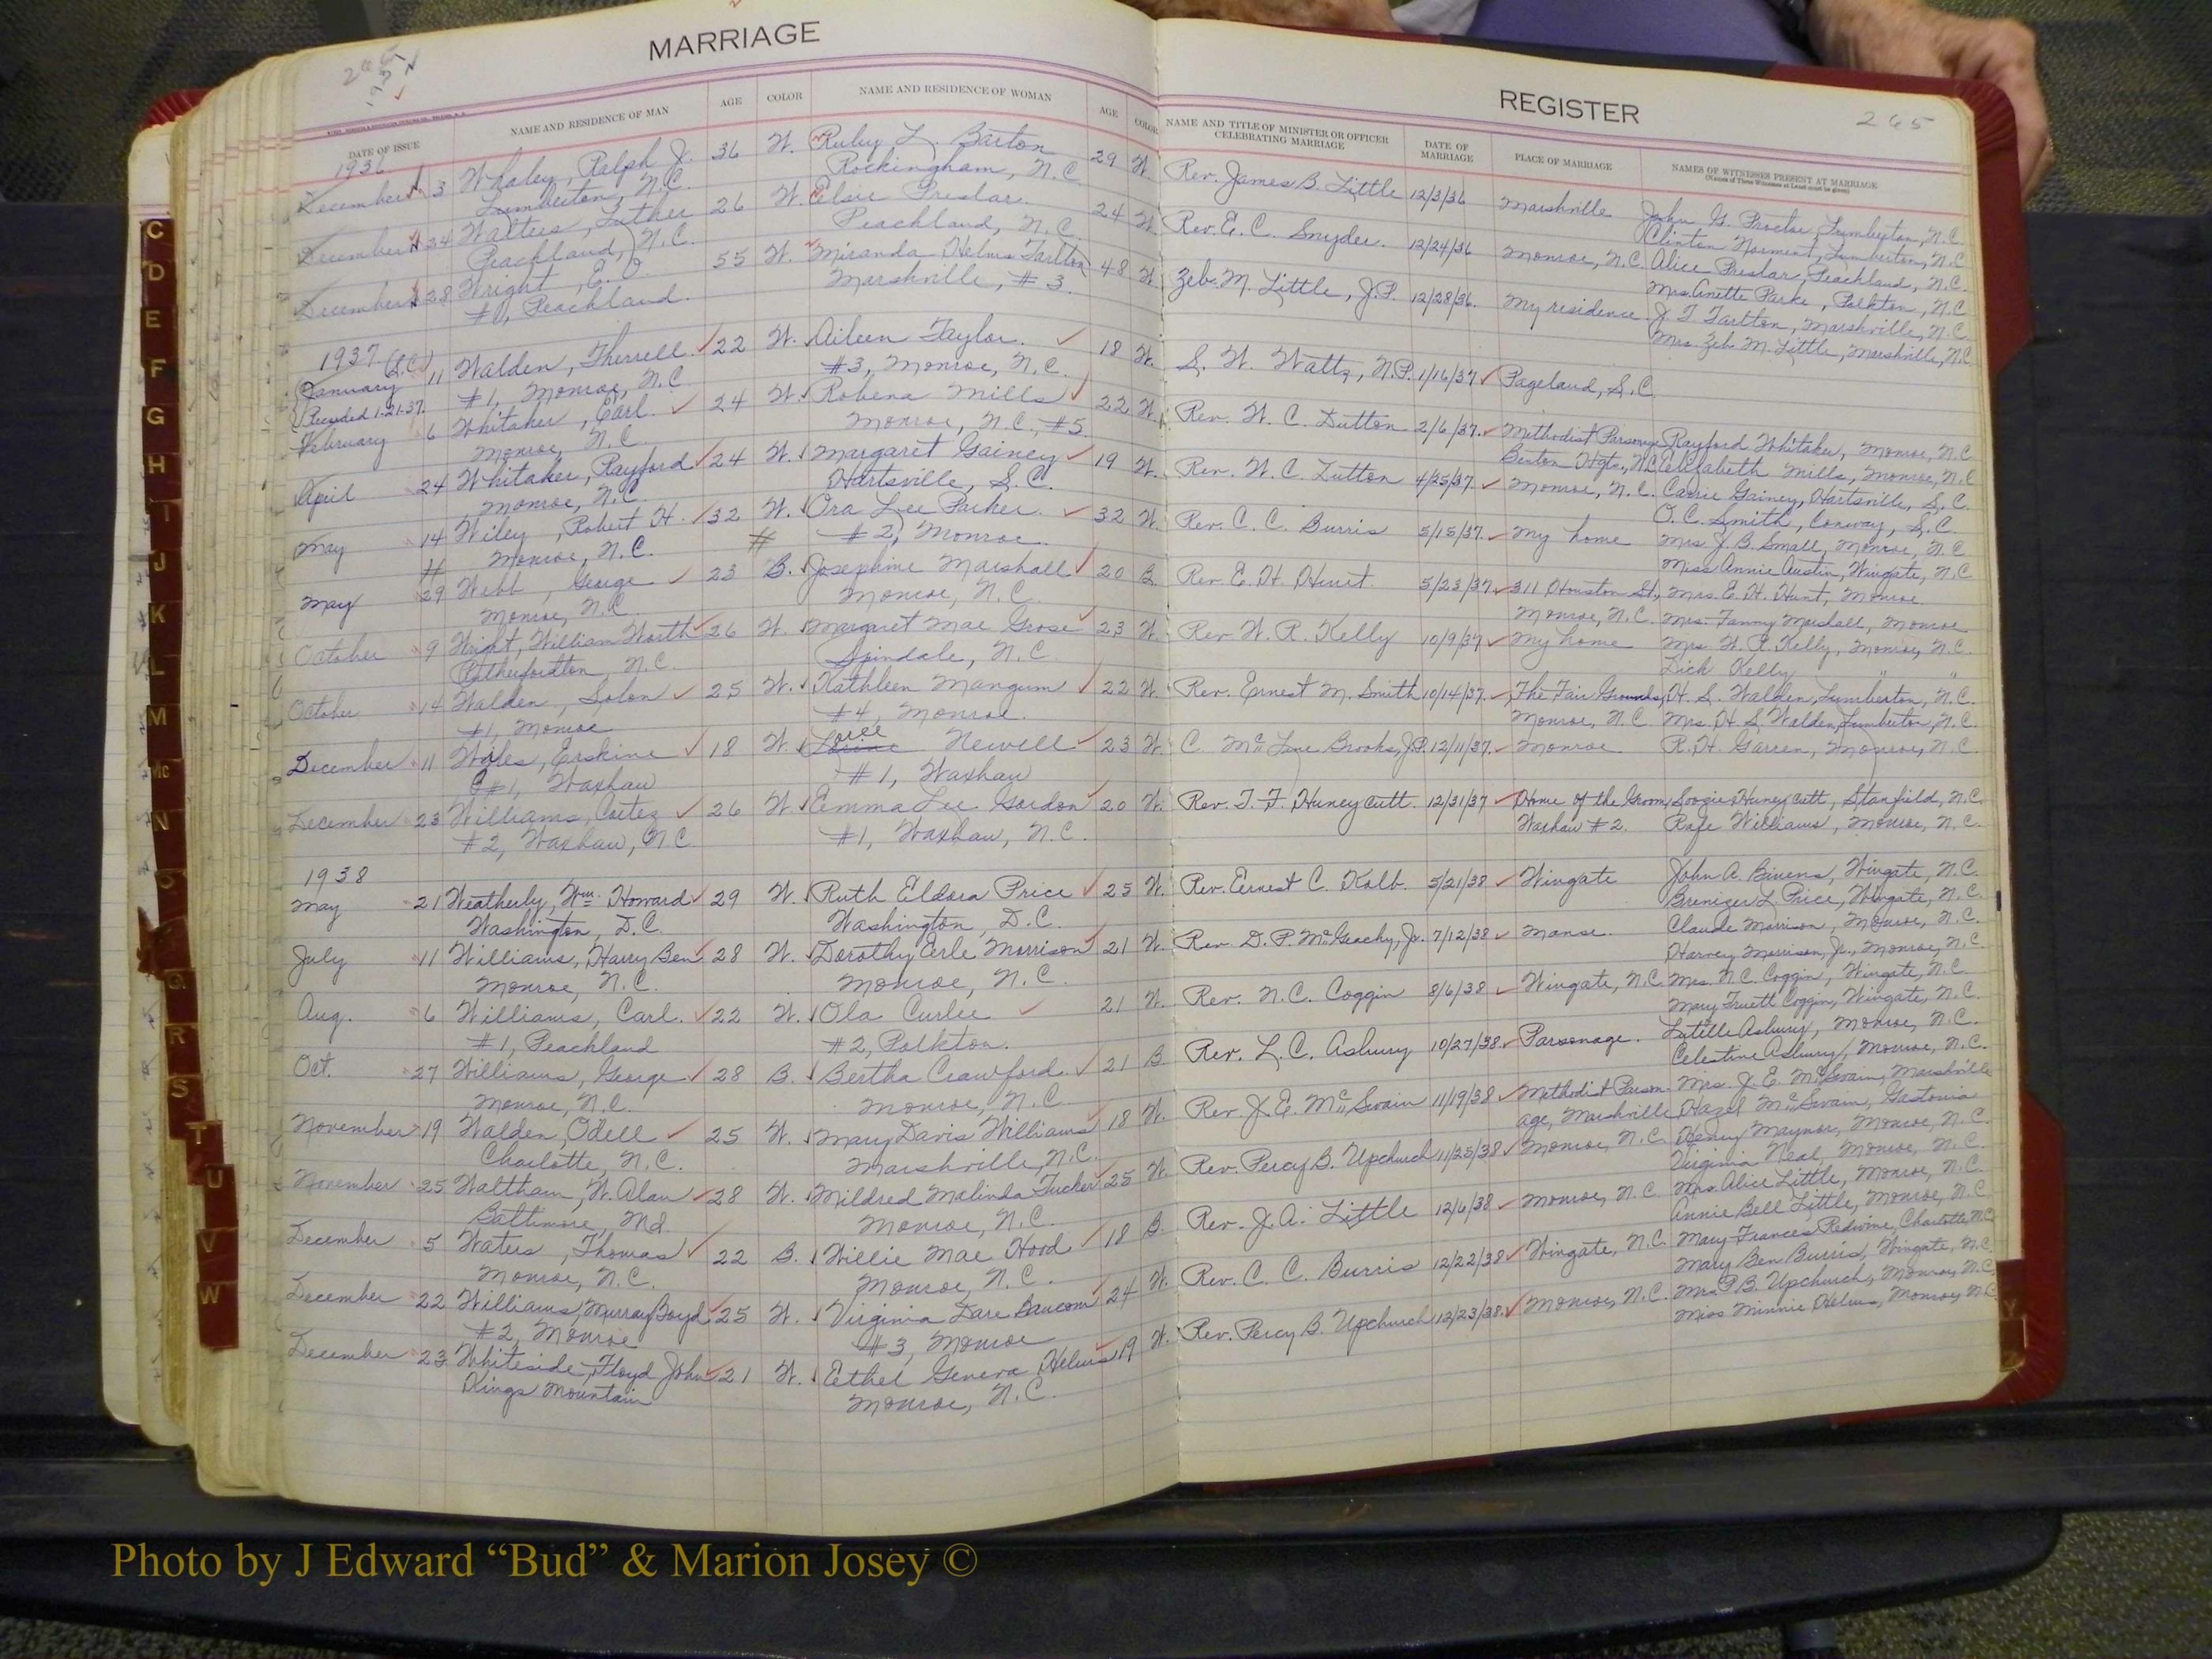 MARRIAGE
DATE OF ISSUE NAME AND RESIDENCE OF MAN AGE COLOR NAME AND RESIDENCE OF WOMAN AGE COLOR
1936
December 3 Whaley, Ralph J. 36 W. Ruby L. Barton 29 W
Lumberton, N.C. Rockingham, N.C
December 24 Walters, Luther 26 W. Elsie Preslar 24 W
Peachland, N.C. Peachland, N.C.
December 28 Wright, E. O. 55 W. Miranda Helms Tarlton 48 W
#1, Peachland. Marshville, #3.
1937 (S.C.)
January 11 Walden, Therrell 22 W. Aileen Taylor 18 W.
Recorded 1-21-37. #1, Monroe, N.C #3, Monroe, N.C.
February 6 Whitaker, Earl 24 W. Robena Mills 22 W.
Monroe, N.C. Monroe, N.C., #5
April 24 Whitaker, Rayford 24 W. Margaret Gainey 19 W.
Monroe, N.C. Hartsville, S.C.
May 14 Wiley, Robert H. 32 W. Ora Lee Parker 32 W.
Monroe, N.C. #2, Monroe.
May 29 Webb, George 23 B. Josephine Marshall 20 B
Monroe, N.C Monroe, N.C.
October 9 Wright, William Worth 26 W. Margaret Mae Grose 23 W
Rutherfordton N.C. Spindale, N.C
October 14 Walden, Solon 25 W. Kathleen Mangum 22 W
#1, Monroe #4, Monroe.
December 11 Wiles, Erskine 18 W. Newell 23 W
#1, Waxhaw #1, Waxhaw
December 23 Williams, Cortez 26 W. Emma Lee Gordon 20 W.
#2, Waxhaw, N.C #1, Waxhaw, N.C.
1938
May 21 Weatherly, Wm. Howard 29 W. Ruth Eldora Price 25 W.
Washington, D.C. Washington, D.C.
July 11 Williams, Harry Ben 28 W. Dorothy Erle Morrison 21 W
Monroe, N.C. Monroe, N.C.
Aug. 6 Williams, Carl. 22 W. Ola Curlee 21 W.
#1, Peachland #2, Polkton.
Oct. 27 Williams, George 28 B. Bertha Crawford 21 B
Monroe, N.C. Monroe, N.C.
November 19 Walden, Odell 25 W. Mary Davis Williams 18 W.
Charlotte, N.C. Marshville, N.C.
November 25 Waltham, W. Alan 28 W. Mildred Malinda Tucker 25 W
Baltimore, Md. Monroe, N.C.
December 5 Waters, Thomas 22 B. Willie Mae Hood 18 B.
Monroe, N.C. Monroe, N.C.
December 22 Williams, Murray Boyd 25 W. Virginia Dare Baucom 24 W.
#2, Monroe #3, Monroe
December 23 Whiteside, Floyd John 21 W. Ethel Geneva Helms 19 W.
Kings Mountain Monroe, N.C.
REGISTER 265
NAME AND TITLE OF MINISTER OR OFFICER CELEBRATING MARRIAGE DATE OF MARRIAGE PLACE OF MARRIAGE NAMES OF WITNESSES PRESENT AT MARRIAGE
(Names of Three Witnesses at Least must be given)
Rev. James B. Little 12/3/36 Marshville John G. Proctor, Lumberton, N.C.
Clinton Norment, Lumberton, N.C
Rev. E. C. Snyder. 12/24/36 Monroe, N.C. Alice Preslar, Peachland, N.C.
Mrs. Parker, Polkton, N.C
Zeb. M. Little, J.P. 12/28/36. My residence. J. T. Tarlton, Marshville, N.C.
Mrs. Zeb M. Little, Marshville, N.C
S. W. Watts, N.P. 1/16/37 Pageland, S.C.
Rev. W. C. Dutton 2/6/37. Methodist Parsonage Rayford Whitaker, Monroe, N.C
Benton Hgts, N.C. Elizabeth Mills, Monroe, N.C
Rev. W. C. Dutton 4/25/37. Monroe, N.C. Carrie Gainey, Hartsville, S.C.
O. C. Smith, Conway, S.C.
Rev. C. C. Burris 5/15/37. My home Mrs J. B. Small, Monroe, N.C
Miss Annie Austin, Wingate, N.C
Rev. E. H. Hunt 5/23/37 311 Houston St., Mrs. E. H. Hunt, Monroe
Monroe, N.C. Mrs. Fanny Marshall, Monroe
Rev W. R. Kelly 10/9/37 My home Mrs. W. R. Kelly, Monroe, N.C.
Dick Kelly " "
Rev. Ernest M. Smith 10/14/37. The Fair Grounds, H. S. Walden, Lumberton, N.C.
Monroe, N.C Mrs. H. S. Walden, Lumberton, N.C.
C. Mc Brooks, J.P. 12/11/37. Monroe R. H. Garren, Monroe, N.C.
Rev. T. F. Huneycutt. 12/31/37 Home of the Groom, Huneycutt, Stanfield, N.C.
Waxhaw #2. Rafe Williams, Monroe, N.C.
Rev. Ernest C. Kolb. 5/21/38 Wingate John A. Bivens, Wingate, N.C.
Brenizer L. Price, Wingate, N.C.
Rev. D. P. McGeachy, Jr. 7/12/38 Manse. Claude Morrison, Monroe, N.C.
Harvey Morrison, Jr., Monroe, N.C.
Rev. N.C. Coggin 8/6/38 Wingate, N.C. Mrs. N.C. Coggin, Wingate, N.C.
Mary Truett Coggin, Wingate, N.C.
Rev. L. C. Asbury 10/27/38. Parsonage. Asbury, Monroe, N.C.
Celestine Asbury, Monroe, N.C.
Rev. J. E. McSwain 11/19/38 Methodist Parson- Mrs. J. E. McSwain, Marshville
age, Marshville Hazel McSwain, Gastonia
Rev. Percy B. Upchurch 11/25/38 Monroe, N.C. Henry Maynor, Monroe, N.C.
Virginia Neal, Monroe, N.C.
Rev. J. A. Little 12/6/38 Monroe, N.C. Mrs. Alice Little, Monroe, N.C.
Annie Bell Little, Monroe, N.C
Rev. C. C. Burris 12/22/38 Wingate, N.C. Mary Frances Redwine, Charlotte, N.C.
Mary Ben Burris, Wingate, N.C.
Rev. Percy B. Upchurch 12/23/38. Monroe, N.C. Mrs. P.B. Upchurch, Monroe, N.C.
Miss Minnie Helms, Monroe, N.C
C
D
E
F
G
H
I
J
K
L
M
Mc
N
O
Q
R
S
T
U
V
W
Y
Photo by J Edward “Bud” & Marion Josey ©